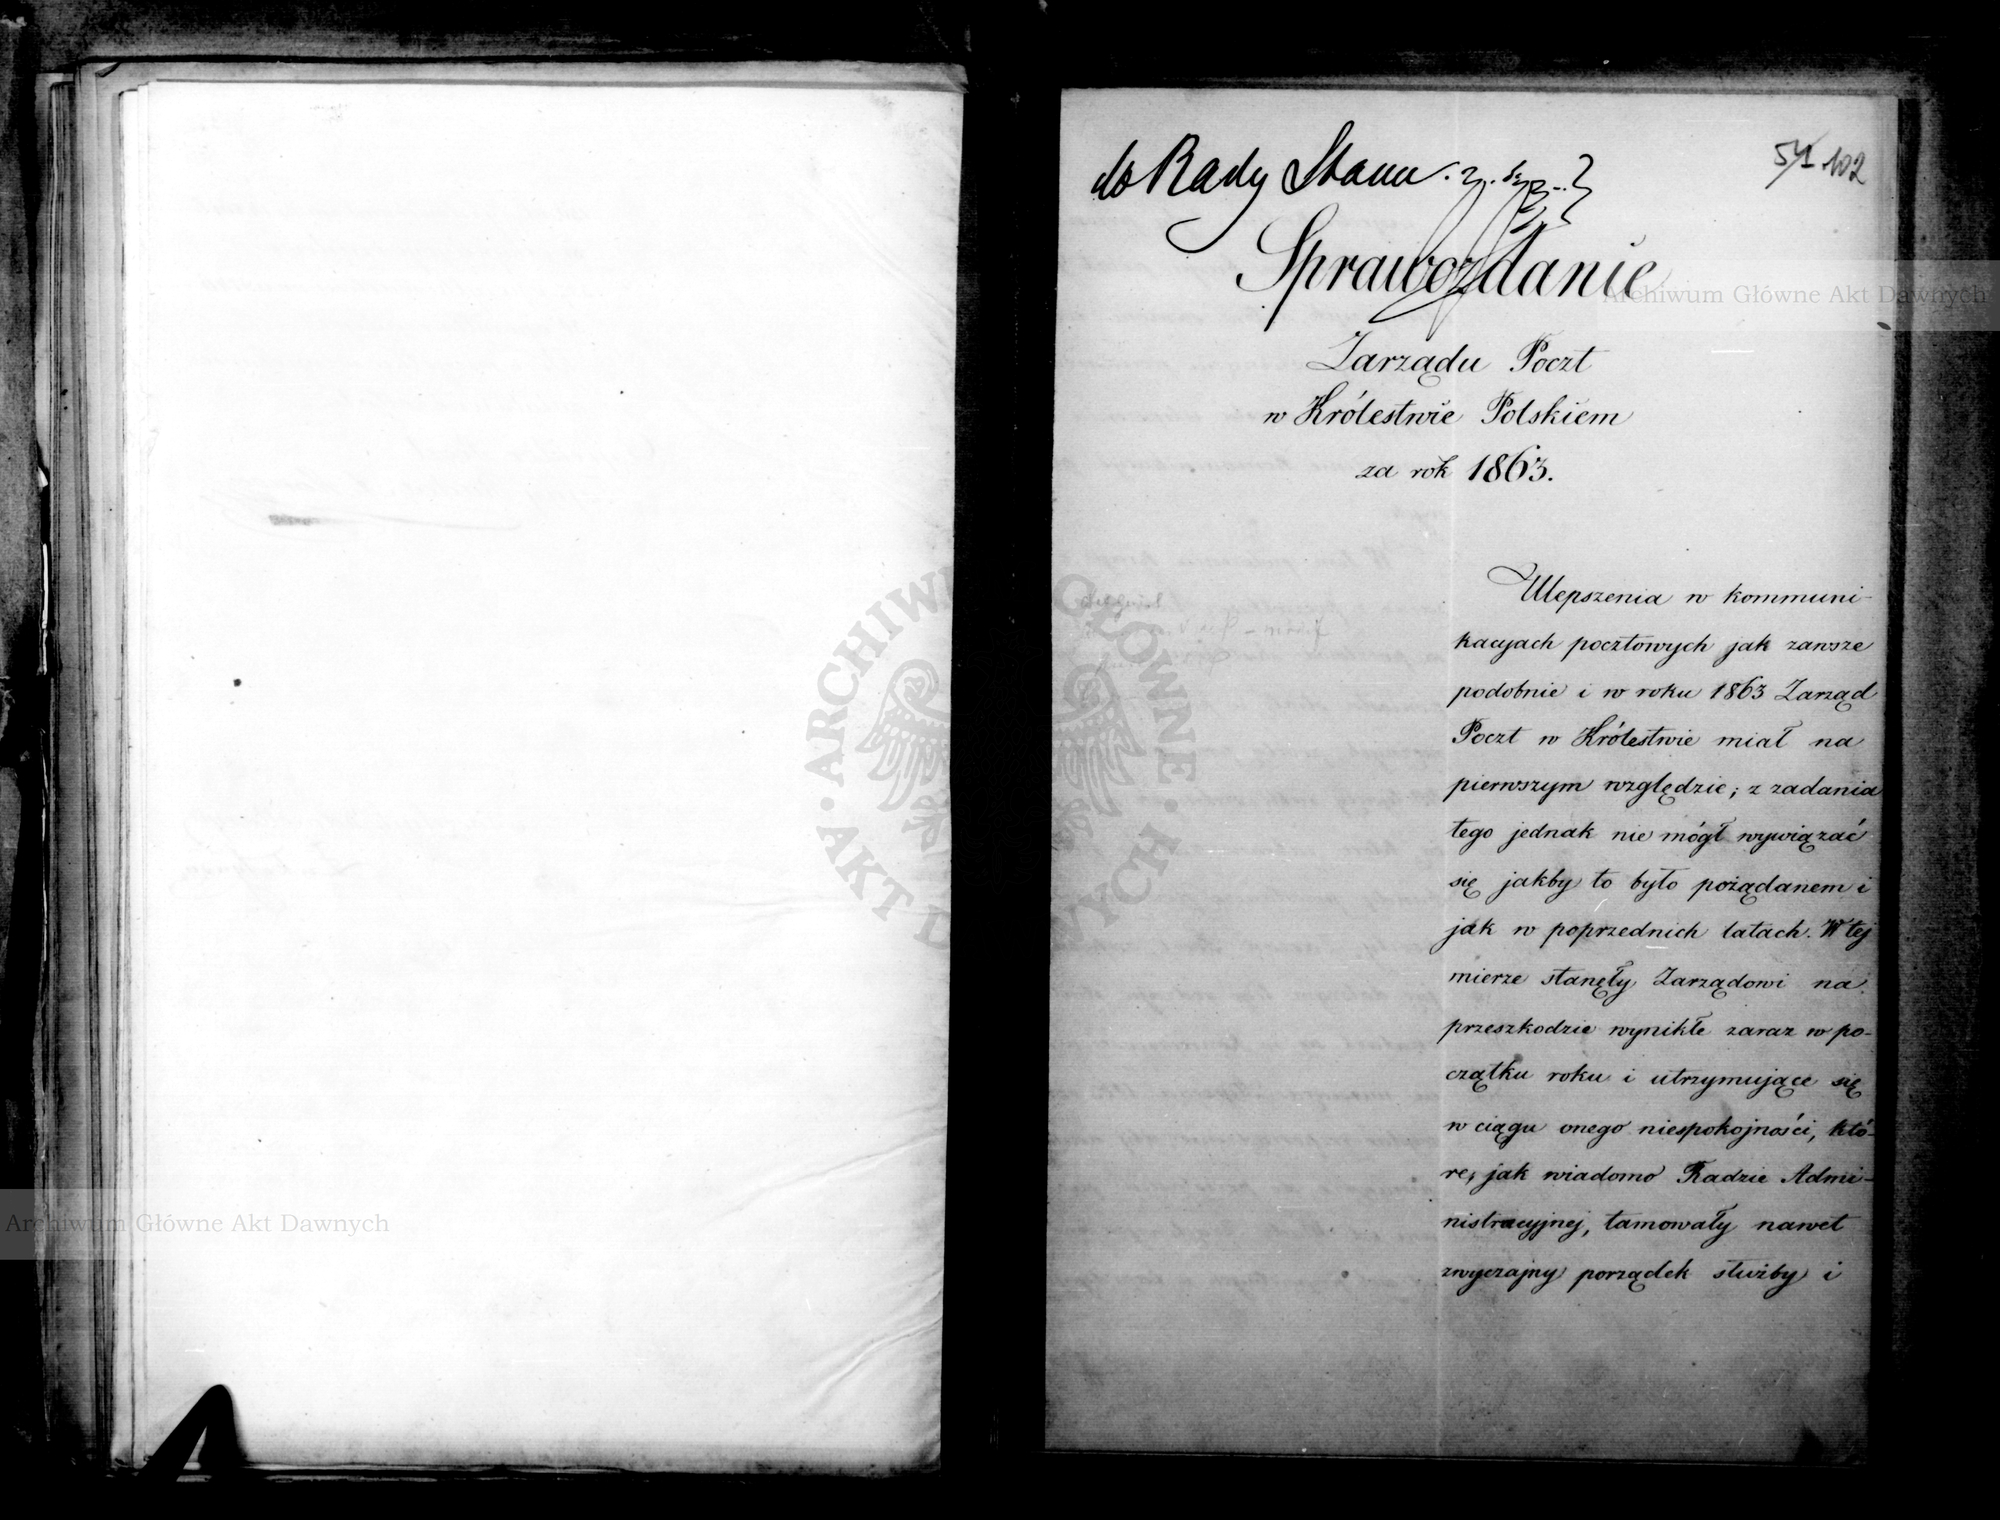 do Rady Stanu
571 102
Sprawozdanie
Zarządu Poczt
w Królestwie Polskiem
za rok 1863.
Ulepszenia w kommuni-
kacyjach pocztowych jak zawsze
podobnie i w roku 1863 Zarząd
Poczt w Królestwie miał na
pierwszym względzie; z zadania
tego jednak nie mógł wywiązać
się jakby to było pożądanem i
jak w poprzednich latach. W tej
mierze stanęły Zarządowi na
przeszkodzie wynikłe zaraz w po-
czątku roku i utrzymujące się
w ciągu onego niespokojności, któ-
re, jak wiadomo Radzie Admi-
nistracyjnej, tamowały nawet
zwyczajny porządek służby i
Archiwum Główne Akt Dawnych
Archiwum Główne Akt Dawnych
ARCHIWUM GŁÓWNE AKT DAWNYCH